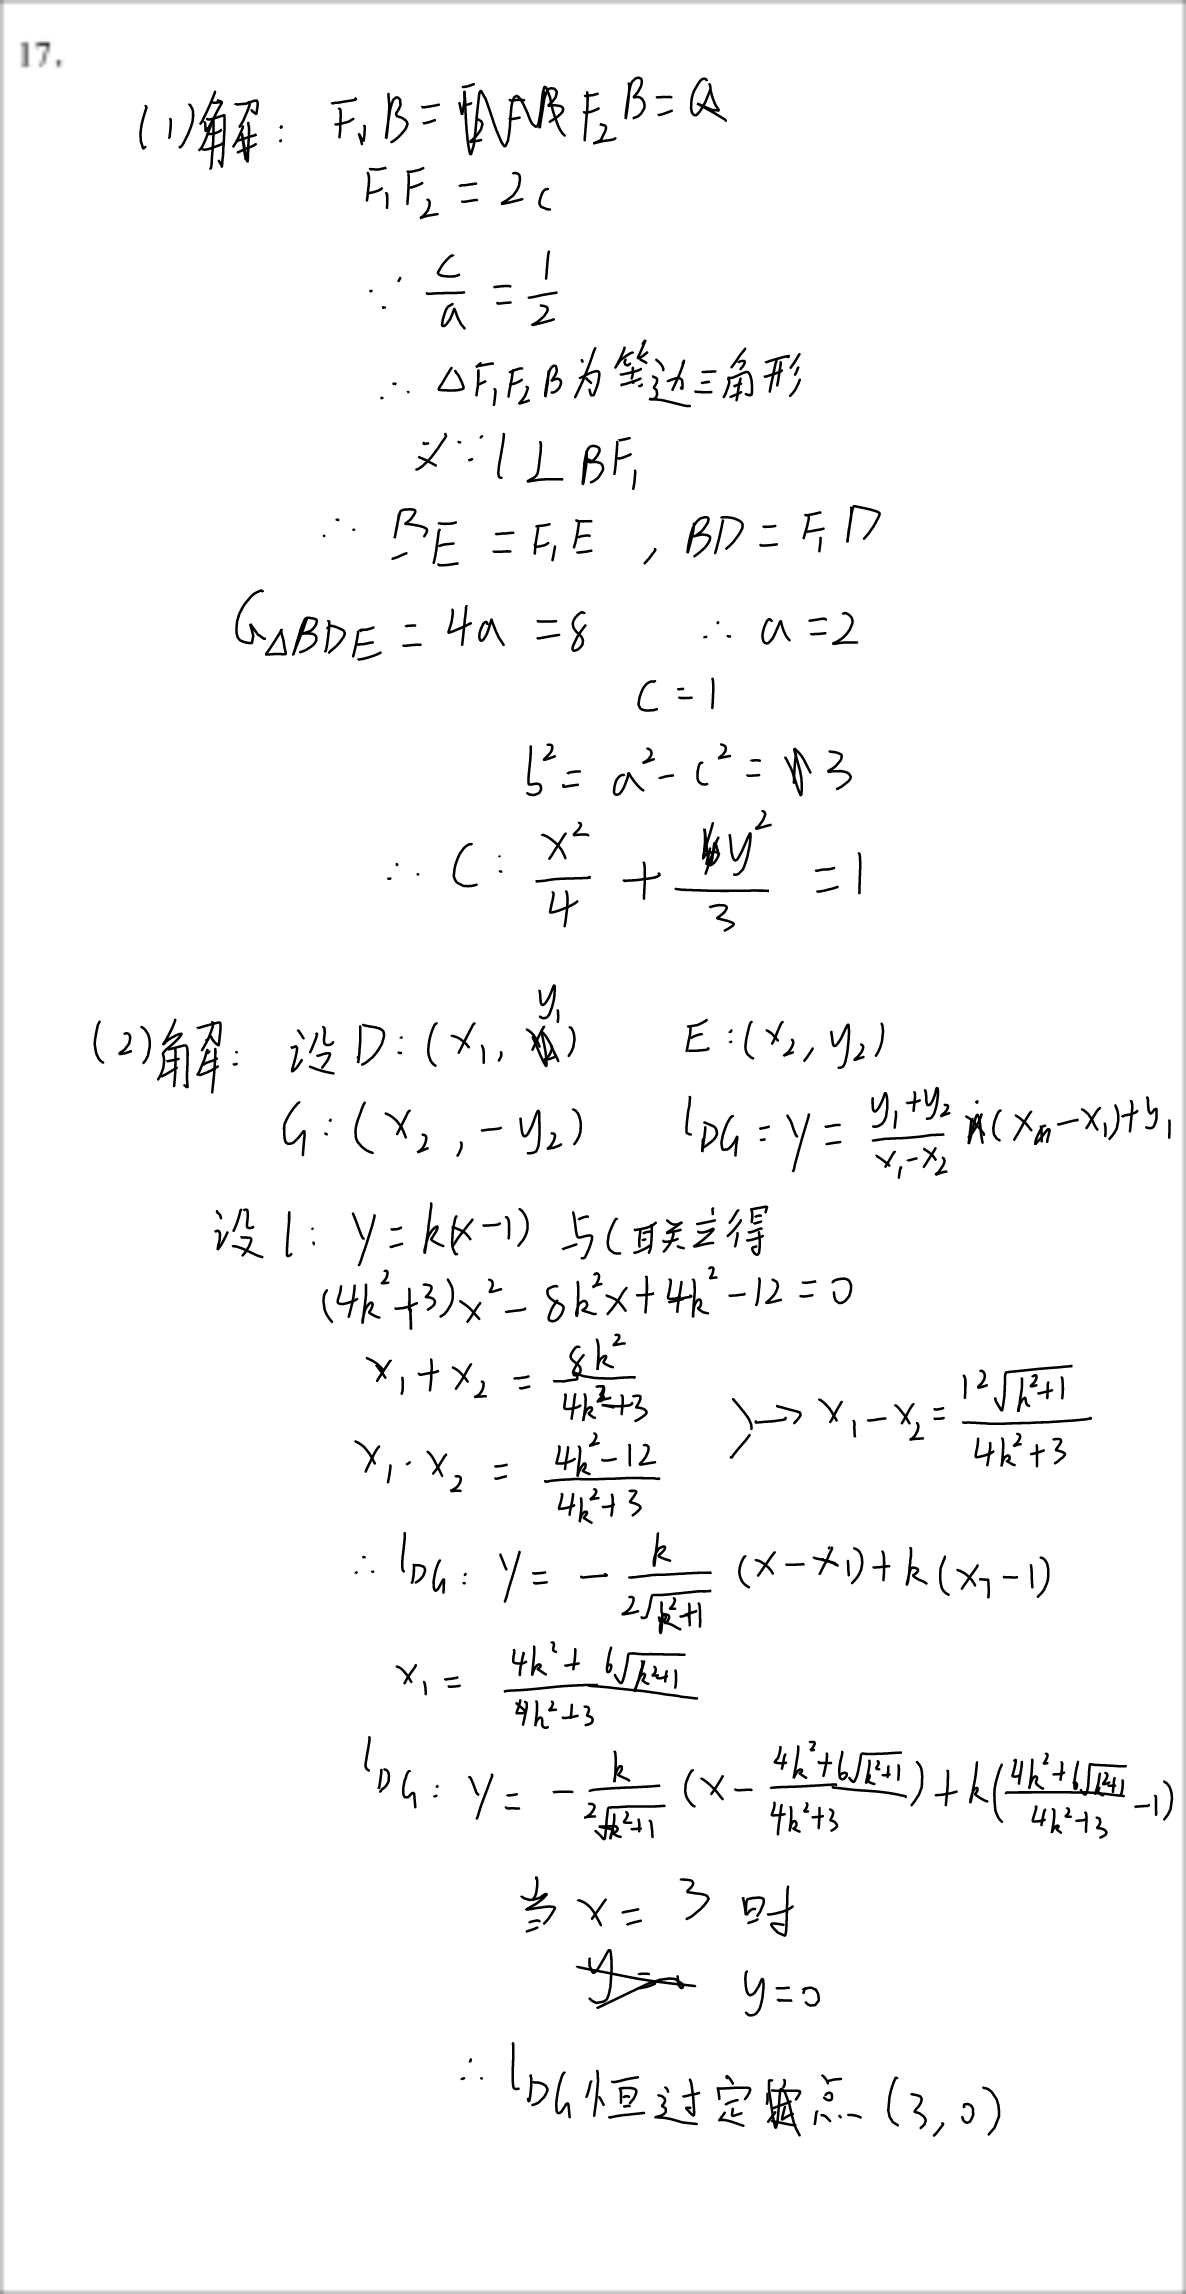 17.
(1)解: F₁B = F₂B = a
F₁F₂ = 2c
∵ c/a = 1/2
∴ △F₁F₂B为等边三角形
又∵ l ⊥ BF₁
∴ BE = F₁E , BD = F₁D
C△BDE = 4a = 8 ∴ a = 2
c = 1
b² = a² - c² = 3
∴ C: x²/4 + y²/3 = 1
(2)解: 设 D: (x₁, y₁) E: (x₂, y₂)
G: (x₂, -y₂) l_DG = y = (y₁+y₂)/(x₁-x₂) (x - x₁) + y₁
设 l: y = k(x-1) 与C联立得
(4k²+3)x² - 8k²x + 4k² - 12 = 0
x₁ + x₂ = 8k²/(4k²+3)
x₁·x₂ = (4k²-12)/(4k²+3) → x₁ - x₂ = 12√(k²+1)/(4k²+3)
∴ l_DG: y = - k/(2√(k²+1)) (x - x₁) + k(x₁ - 1)
x₁ = (4k² + 6√(k²+1))/(4k²+3)
l_DG: y = - k/(2√(k²+1)) (x - (4k²+6√(k²+1))/(4k²+3)) + k((4k²+6√(k²+1))/(4k²+3) - 1)
当 x = 3 时
y = 0
∴ l_DG 恒过定点 (3, 0)